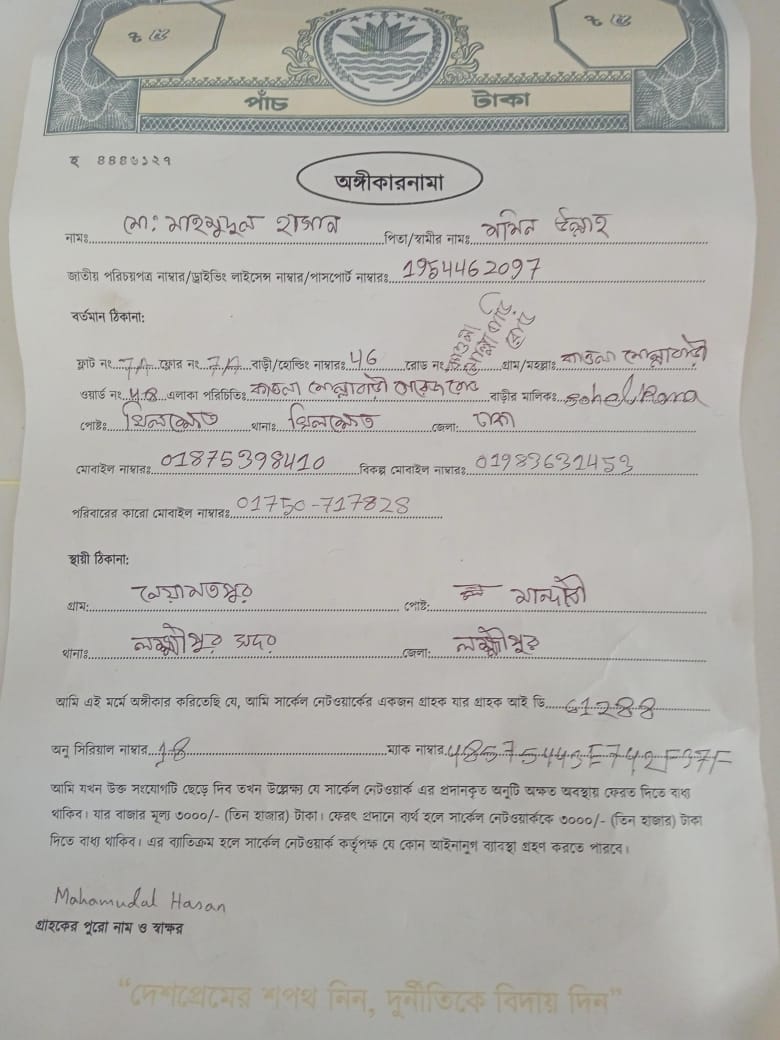 ৫ ৫
পাঁচ টাকা
হ ৪৪৪৬১২৭
অঙ্গীকারনামা
নামঃ মো: মাহমুদুল হাসান পিতা/স্বামীর নামঃ আমিন উল্লাহ
জাতীয় পরিচয়পত্র নাম্বার/ড্রাইভিং লাইসেন্স নাম্বার/পাসপোর্ট নাম্বারঃ 1954462097
বর্তমান ঠিকানা:
ফ্লাট নং 7A ফ্লোর নং 7A বাড়ী/হোল্ডিং নাম্বারঃ 46 রোড নং কাওলা মোল্লাবাড়ি রোড গ্রাম/মহল্লাঃ কাওলা মোল্লাবাড়ী
ওয়ার্ড নং 48 এলাকা পরিচিতিঃ কাওলা মোল্লাবাড়ী বাড়ীর মালিকঃ Sohel Rana
পোষ্টঃ খিলক্ষেত থানাঃ খিলক্ষেত জেলা: ঢাকা
মোবাইল নাম্বারঃ 01875398410 বিকল্প মোবাইল নাম্বারঃ 01983631453
পরিবারের কারো মোবাইল নাম্বারঃ 01750-717828
স্থায়ী ঠিকানা:
গ্রাম: নেয়ামতপুর পোষ্ট: মান্দারী
থানাঃ লক্ষ্মীপুর সদর জেলা: লক্ষ্মীপুর
আমি এই মর্মে অঙ্গীকার করিতেছি যে, আমি সার্কেল নেটওয়ার্কের একজন গ্রাহক যার গ্রাহক আই ডি 61288
অনু সিরিয়াল নাম্বার 18 ম্যাক নাম্বার 485754431E742F37F
আমি যখন উক্ত সংযোগটি ছেড়ে দিব তখন উল্লেক্ষ্য যে সার্কেল নেটওয়ার্ক এর প্রদানকৃত অনুটি অক্ষত অবস্থায় ফেরত দিতে বাধ্য
থাকিব। যার বাজার মূল্য ৩০০০/- (তিন হাজার) টাকা। ফেরৎ প্রদানে ব্যর্থ হলে সার্কেল নেটওয়ার্ককে ৩০০০/- (তিন হাজার) টাকা
দিতে বাধ্য থাকিব। এর ব্যাতিক্রম হলে সার্কেল নেটওয়ার্ক কর্তৃপক্ষ যে কোন আইনানুগ ব্যাবস্থা গ্রহণ করতে পারবে।
Mahamudal Hasan
গ্রাহকের পুরো নাম ও স্বাক্ষর
"দেশপ্রেমের শপথ নিন, দুর্নীতিকে বিদায় দিন"